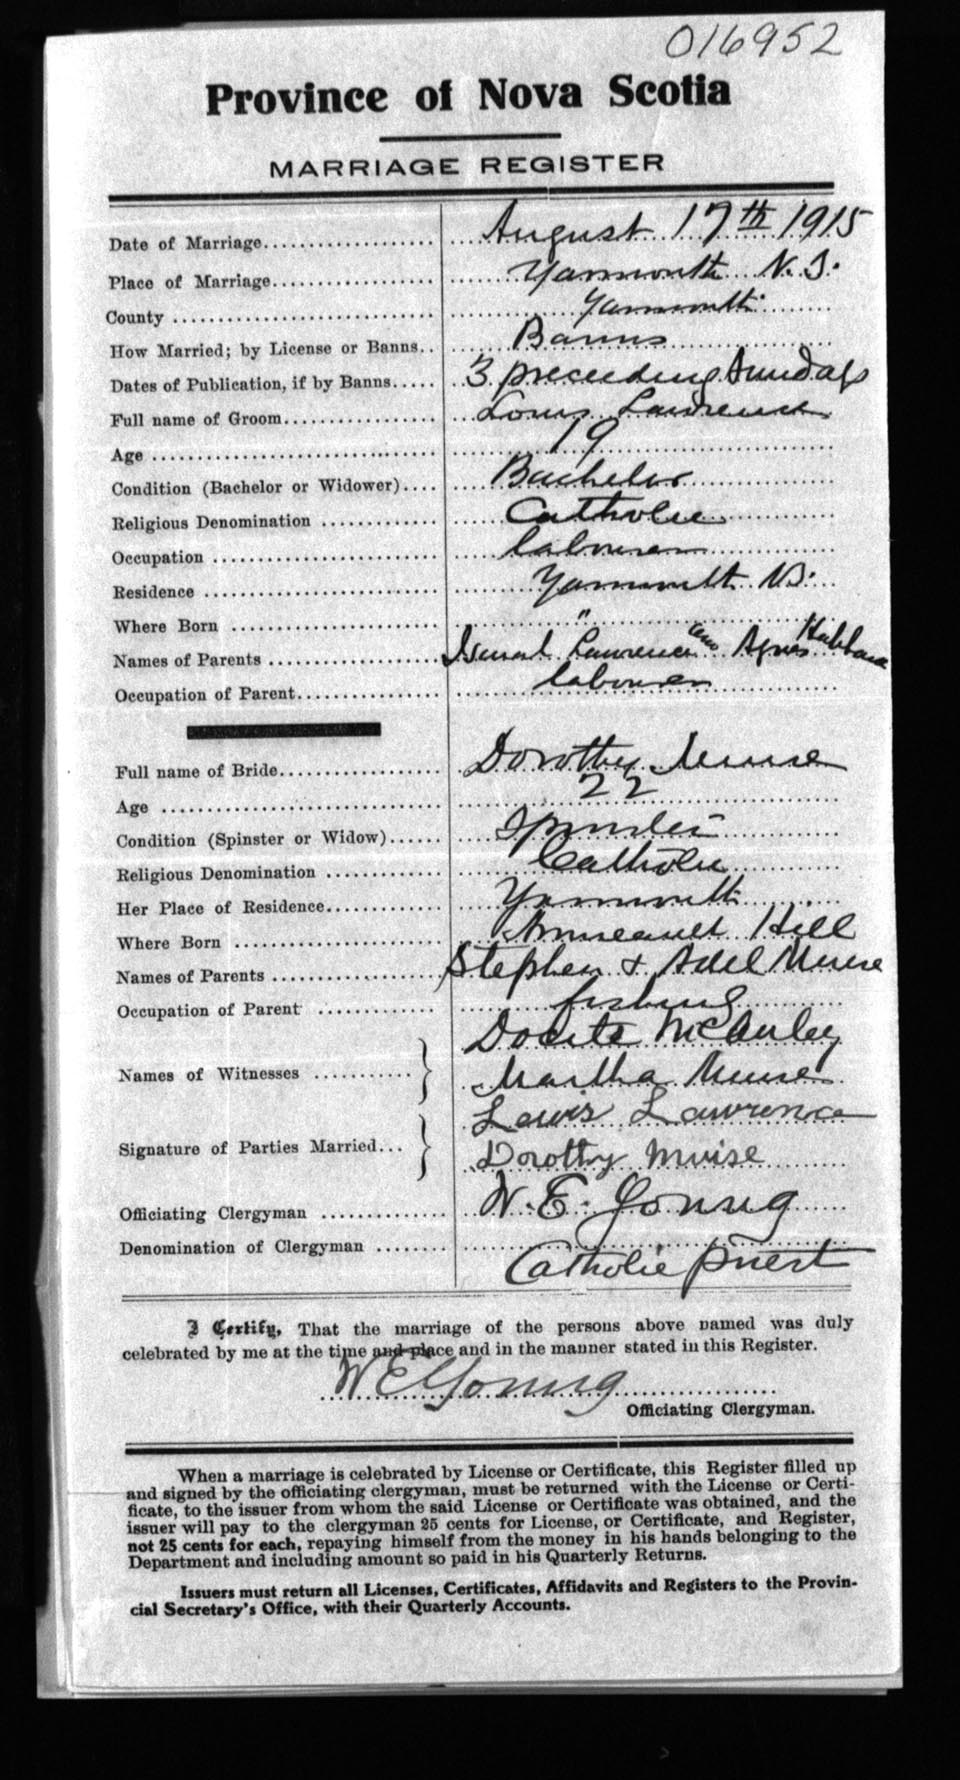 016952
Province of Nova Scotia
MARRIAGE REGISTER
Date of Marriage.................... August 17th 1915
Place of Marriage................... Yarmouth N.S.
County .............................. Yarmouth
How Married; by License or Banns.. Banns
Dates of Publication, if by Banns..... 3 preceeding Sundays
Full name of Groom.................. Louis Lawrence
Age .................................. 19
Condition (Bachelor or Widower).... Bachelor
Religious Denomination ............. Catholic
Occupation .......................... labourer
Residence ........................... Yarmouth N.S.
Where Born ........................ "
Names of Parents ................... Lawrence and Agnes Hubbard
Occupation of Parent................. labourer
Full name of Bride................... Dorothy Muise
Age ................................. 22
Condition (Spinster or Widow)...... Spinster
Religious Denomination ............. Catholic
Her Place of Residence.............. Yarmouth
Where Born ........................ Hill
Names of Parents ................... Stephen & Adel Muise
Occupation of Parent ............... fishing
Names of Witnesses ............ } McAuley
Martha Muise
Signature of Parties Married... } Lewis Lawrence
Dorothy Muise
Officiating Clergyman ............... W. E. Young
Denomination of Clergyman ........ Catholic priest
I Certify, That the marriage of the persons above named was duly
celebrated by me at the time and place and in the manner stated in this Register.
W E Young
Officiating Clergyman.
When a marriage is celebrated by License or Certificate, this Register filled up
and signed by the officiating clergyman, must be returned with the License or Certi-
ficate, to the issuer from whom the said License or Certificate was obtained, and the
issuer will pay to the clergyman 25 cents for License, or Certificate, and Register,
not 25 cents for each, repaying himself from the money in his hands belonging to the
Department and including amount so paid in his Quarterly Returns.
Issuers must return all Licenses, Certificates, Affidavits and Registers to the Provin-
cial Secretary's Office, with their Quarterly Accounts.